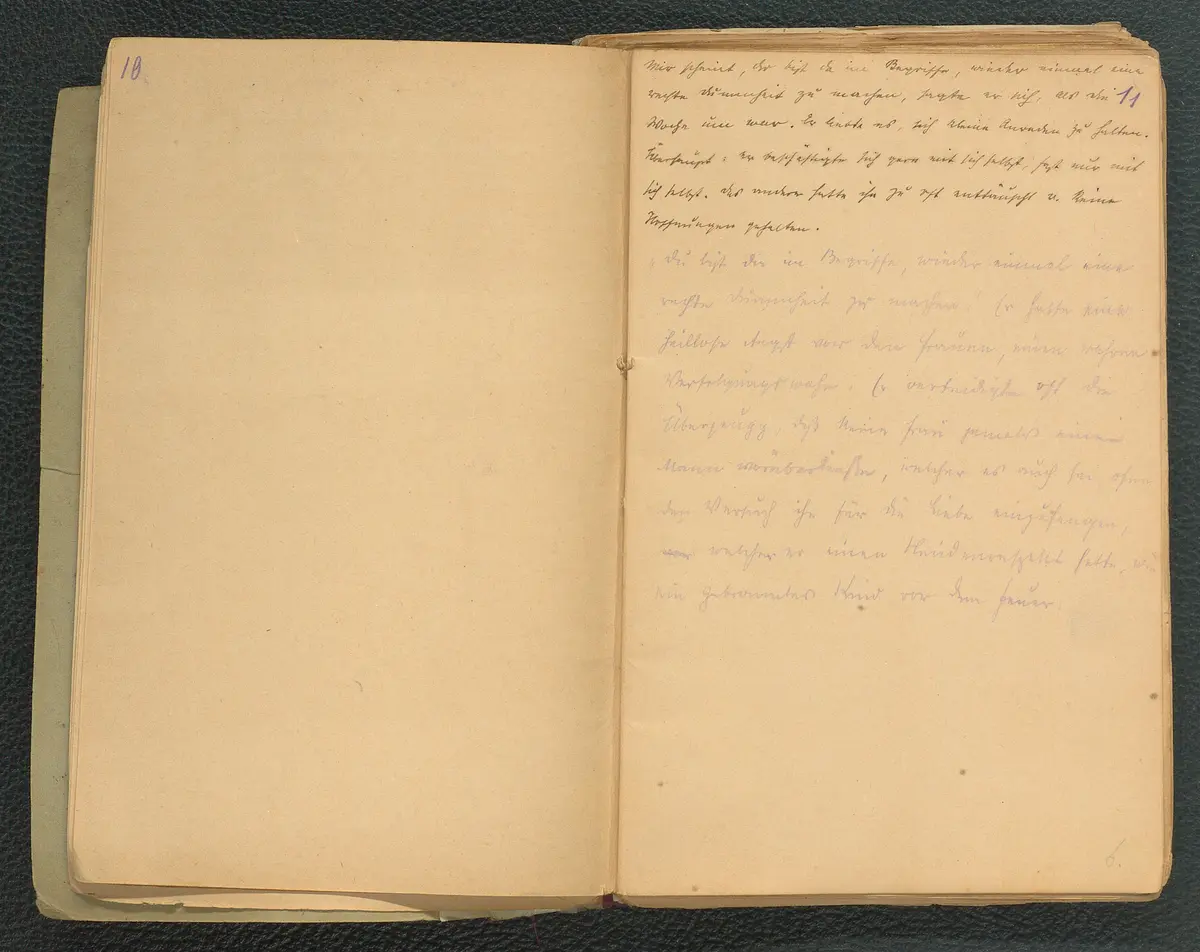 10
11
Mir scheint, du bist da im Begriffe, wieder einmal eine
rechte Dummheit zu machen, sagte er sich, als die
Woche um war. Er liebte es, sich kleine Anreden zu halten.
Überhaupt: er beschäftigte sich gern mit sich selbst, fast nur mit
sich selbst. Das andere hatte ihn zu oft enttäuscht u. keine
Hoffnungen gehalten.
"Du bist da im Begriffe, wieder einmal eine
rechte Dummheit zu machen! Er hatte eine
heillose Angst vor den Frauen, einen wahren
Verfolgungswahn. Er verteidigte oft die
Überzeugg, daß keine Frau jemals einen
Mann, welcher es auch sei, ohne
den Versuch ihn für die Liebe einzufangen,
vor welcher er einen hatte, wie
ein gebranntes Kind vor dem Feuer.
6.